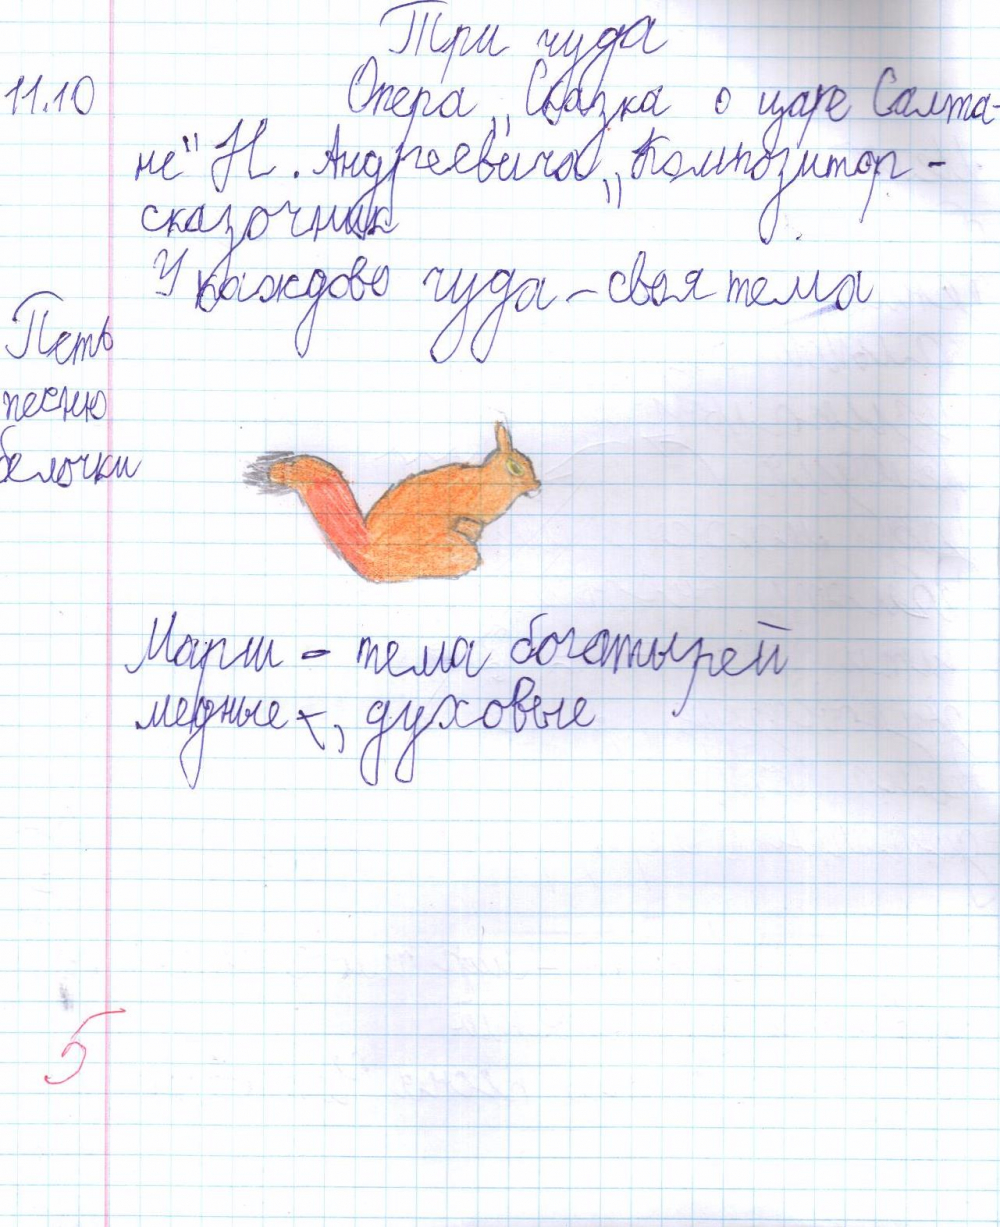 Три чуда
11.10
Опера „Сказка о царе Салта-
не" Н. Андреевича „Композитор-
сказочник
У каждово чуда – своя тема
Петь
песню
белочки
Марш – тема богатырей
медные –, духовые
5